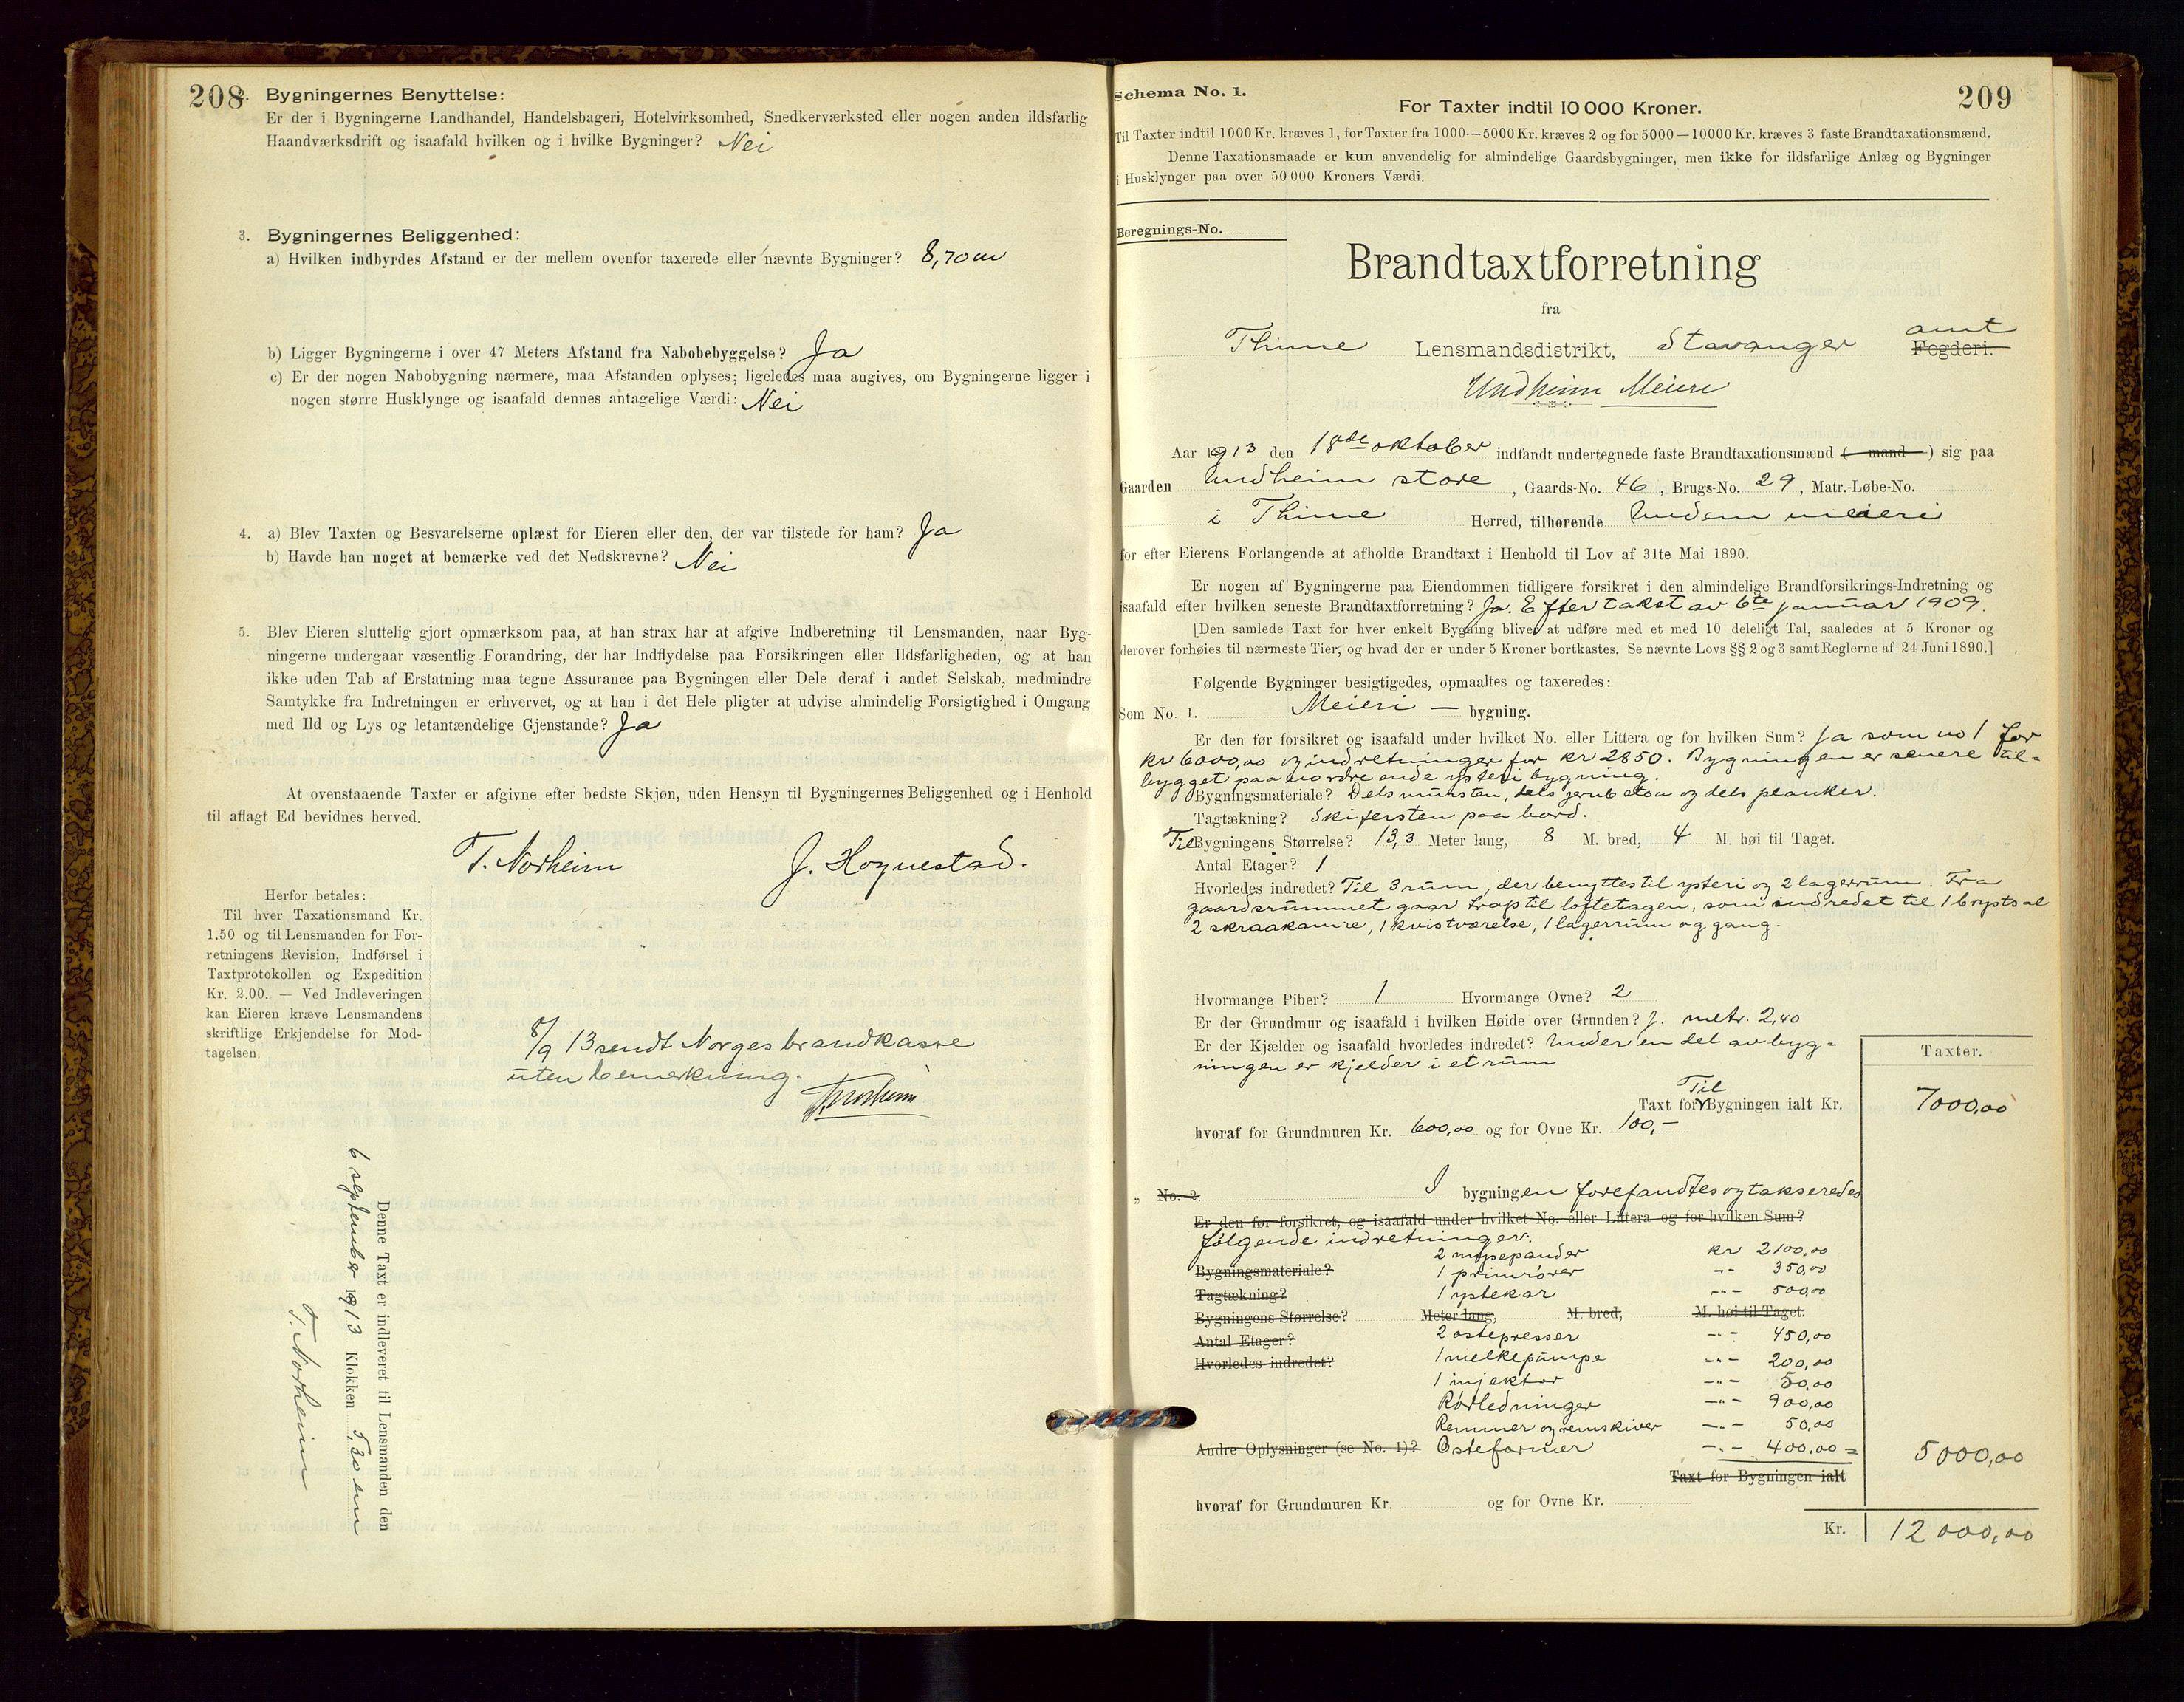 208
2. Bygningernes Benyttelse:
Er der i Bygningerne Landhandel, Handelsbageri, Hotelvirksomhed, Snedkerværksted eller nogen anden ildsfarlig
Haandværksdrift og isaafald hvilken og i hvilke Bygninger? Nei
3. Bygningernes Beliggenhed:
a) Hvilken indbyrdes Afstand er der mellem ovenfor taxerede eller nævnte Bygninger? 8,70 m
b) Ligger Bygningerne i over 47 Meters Afstand fra Nabobebyggelse? Ja
c) Er der nogen Nabobygning nærmere, maa Afstanden oplyses; ligeledes maa angives, om Bygningerne ligger i
nogen større Husklynge og isaafald dennes antagelige Værdi: Nei
4. a) Blev Taxten og Besvarelserne oplæst for Eieren eller den, der var tilstede for ham? Ja
b) Havde han noget at bemærke ved det Nedskrevne? Nei
5. Blev Eieren sluttelig gjort opmærksom paa, at han strax har at afgive Indberetning til Lensmanden, naar Byg-
ningerne undergaar væsentlig Forandring, der har Indflydelse paa Forsikringen eller Ildsfarligheden, og at han
ikke uden Tab af Erstatning maa tegne Assurance paa Bygningen eller Dele deraf i andet Selskab, medmindre
Samtykke fra Indretningen er erhvervet, og at han i det Hele pligter at udvise almindelig Forsigtighed i Omgang
med Ild og Lys og letantændelige Gjenstande? Ja
At ovenstaaende Taxter er afgivne efter bedste Skjøn, uden Hensyn til Bygningernes Beliggenhed og i Henhold
til aflagt Ed bevidnes herved.
T. Norheim J. Hognestad.
Herfor betales:
Til hver Taxationsmand Kr.
1.50 og til Lensmanden for For-
retningens Revision, Indførsel i
Taxtprotokollen og Expedition
Kr. 2.00. — Ved Indleveringen
kan Eieren kræve Lensmandens
skriftlige Erkjendelse for Mod-
tagelsen.
8/9 13 sendt Norges brandkasse
uten bemerkning.
T. Norheim
Denne Taxt er indleveret til Lensmanden den
6 september 1913 Klokken 5,30 em
T. Norheim
209
Schema No. 1.
For Taxter indtil 10 000 Kroner.
Til Taxter indtil 1000 Kr. kræves 1, for Taxter fra 1000—5000 Kr. kræves 2 og for 5000—10000 Kr. kræves 3 faste Brandtaxationsmænd.
Denne Taxationsmaade er kun anvendelig for almindelige Gaardsbygninger, men ikke for ildsfarlige Anlæg og Bygninger
i Husklynger paa over 50 000 Kroners Værdi.
Beregnings-No.
Brandtaxtforretning
fra
Thime Lensmandsdistrikt, Stavanger amt Fogderi.
Undheim Meieri
Aar 1913 den 18de oktober indfandt undertegnede faste Brandtaxationsmænd (— mand —) sig paa
Gaarden Undheim store, Gaards-No. 46, Brugs-No. 29, Matr.-Løbe-No.
i Thime Herred, tilhørende Undem meieri
for efter Eierens Forlangende at afholde Brandtaxt i Henhold til Lov af 31te Mai 1890.
Er nogen af Bygningerne paa Eiendommen tidligere forsikret i den almindelige Brandforsikrings-Indretning og
isaafald efter hvilken seneste Brandtaxtforretning? Ja. Efter takst av 6te januar 1909.
[Den samlede Taxt for hver enkelt Bygning bliver at udføre med et med 10 deleligt Tal, saaledes at 5 Kroner og
derover forhøies til nærmeste Tier, og hvad der er under 5 Kroner bortkastes. Se nævnte Lovs §§ 2 og 3 samt Reglerne af 24 Juni 1890.]
Følgende Bygninger besigtigedes, opmaaltes og taxeredes:
Som No. 1. Meieri — bygning.
Er den før forsikret og isaafald under hvilket No. eller Littera og for hvilken Sum? Ja som no 1 for
kr 6000,00 og indretninger for kr 2850. Bygningen er senere til-
bygget paa nordre ende ysteri bygning.
Bygningsmateriale? Dels mursten, dels jernbeton og dels planker.
Tagtækning? Skifersten paa bord.
Til Bygningens Størrelse? 13,3 Meter lang, 8 M. bred, 4 M. høi til Taget.
Antal Etager? 1
Hvorledes indredet? Til 3 rum, der benyttes til ysteri og 2 lagerrum. Fra
gaardsrummet gaar trap til loftetagen, som indredet til 1 brystsal
2 skraakamre, 1 kvistværelse, 1 lagerrum og gang.
Hvormange Piber? 1 Hvormange Ovne? 2
Er der Grundmur og isaafald i hvilken Høide over Grunden? J. metr. 2,40
Er der Kjælder og isaafald hvorledes indredet? Under en del av byg-
ningen er kjelder i et rum
Taxter.
Taxt for Til Bygningen ialt Kr. 7000,00
hvoraf for Grundmuren Kr. 600,00 og for Ovne Kr. 100,—
„ No. 2. I bygningen forefandtes og takseredes
Er den før forsikret, og isaafald under hvilket No. eller Littera og for hvilken Sum?
følgende indretninger:
2 mysepander kr 2100,00
Bygningsmateriale? 1 primrörer -"- 350,00
Tagtækning? 1 ystekar -"- 500,00
Bygningens Størrelse? Meter lang, M. bred, M. høi til Taget.
Antal Etager? 2 ostepresser -"- 450,00
Hvorledes indredet? 1 melkepumpe -"- 200,00
1 injektor -"- 50,00
Rörledninger -"- 900,00
Remmer og remskiver -"- 50,00
Andre Oplysninger (se No. 1)? Osteformer -"- 400,00 = 5000,00
Taxt for Bygningen ialt
hvoraf for Grundmuren Kr. og for Ovne Kr.
Kr. 12 000,00